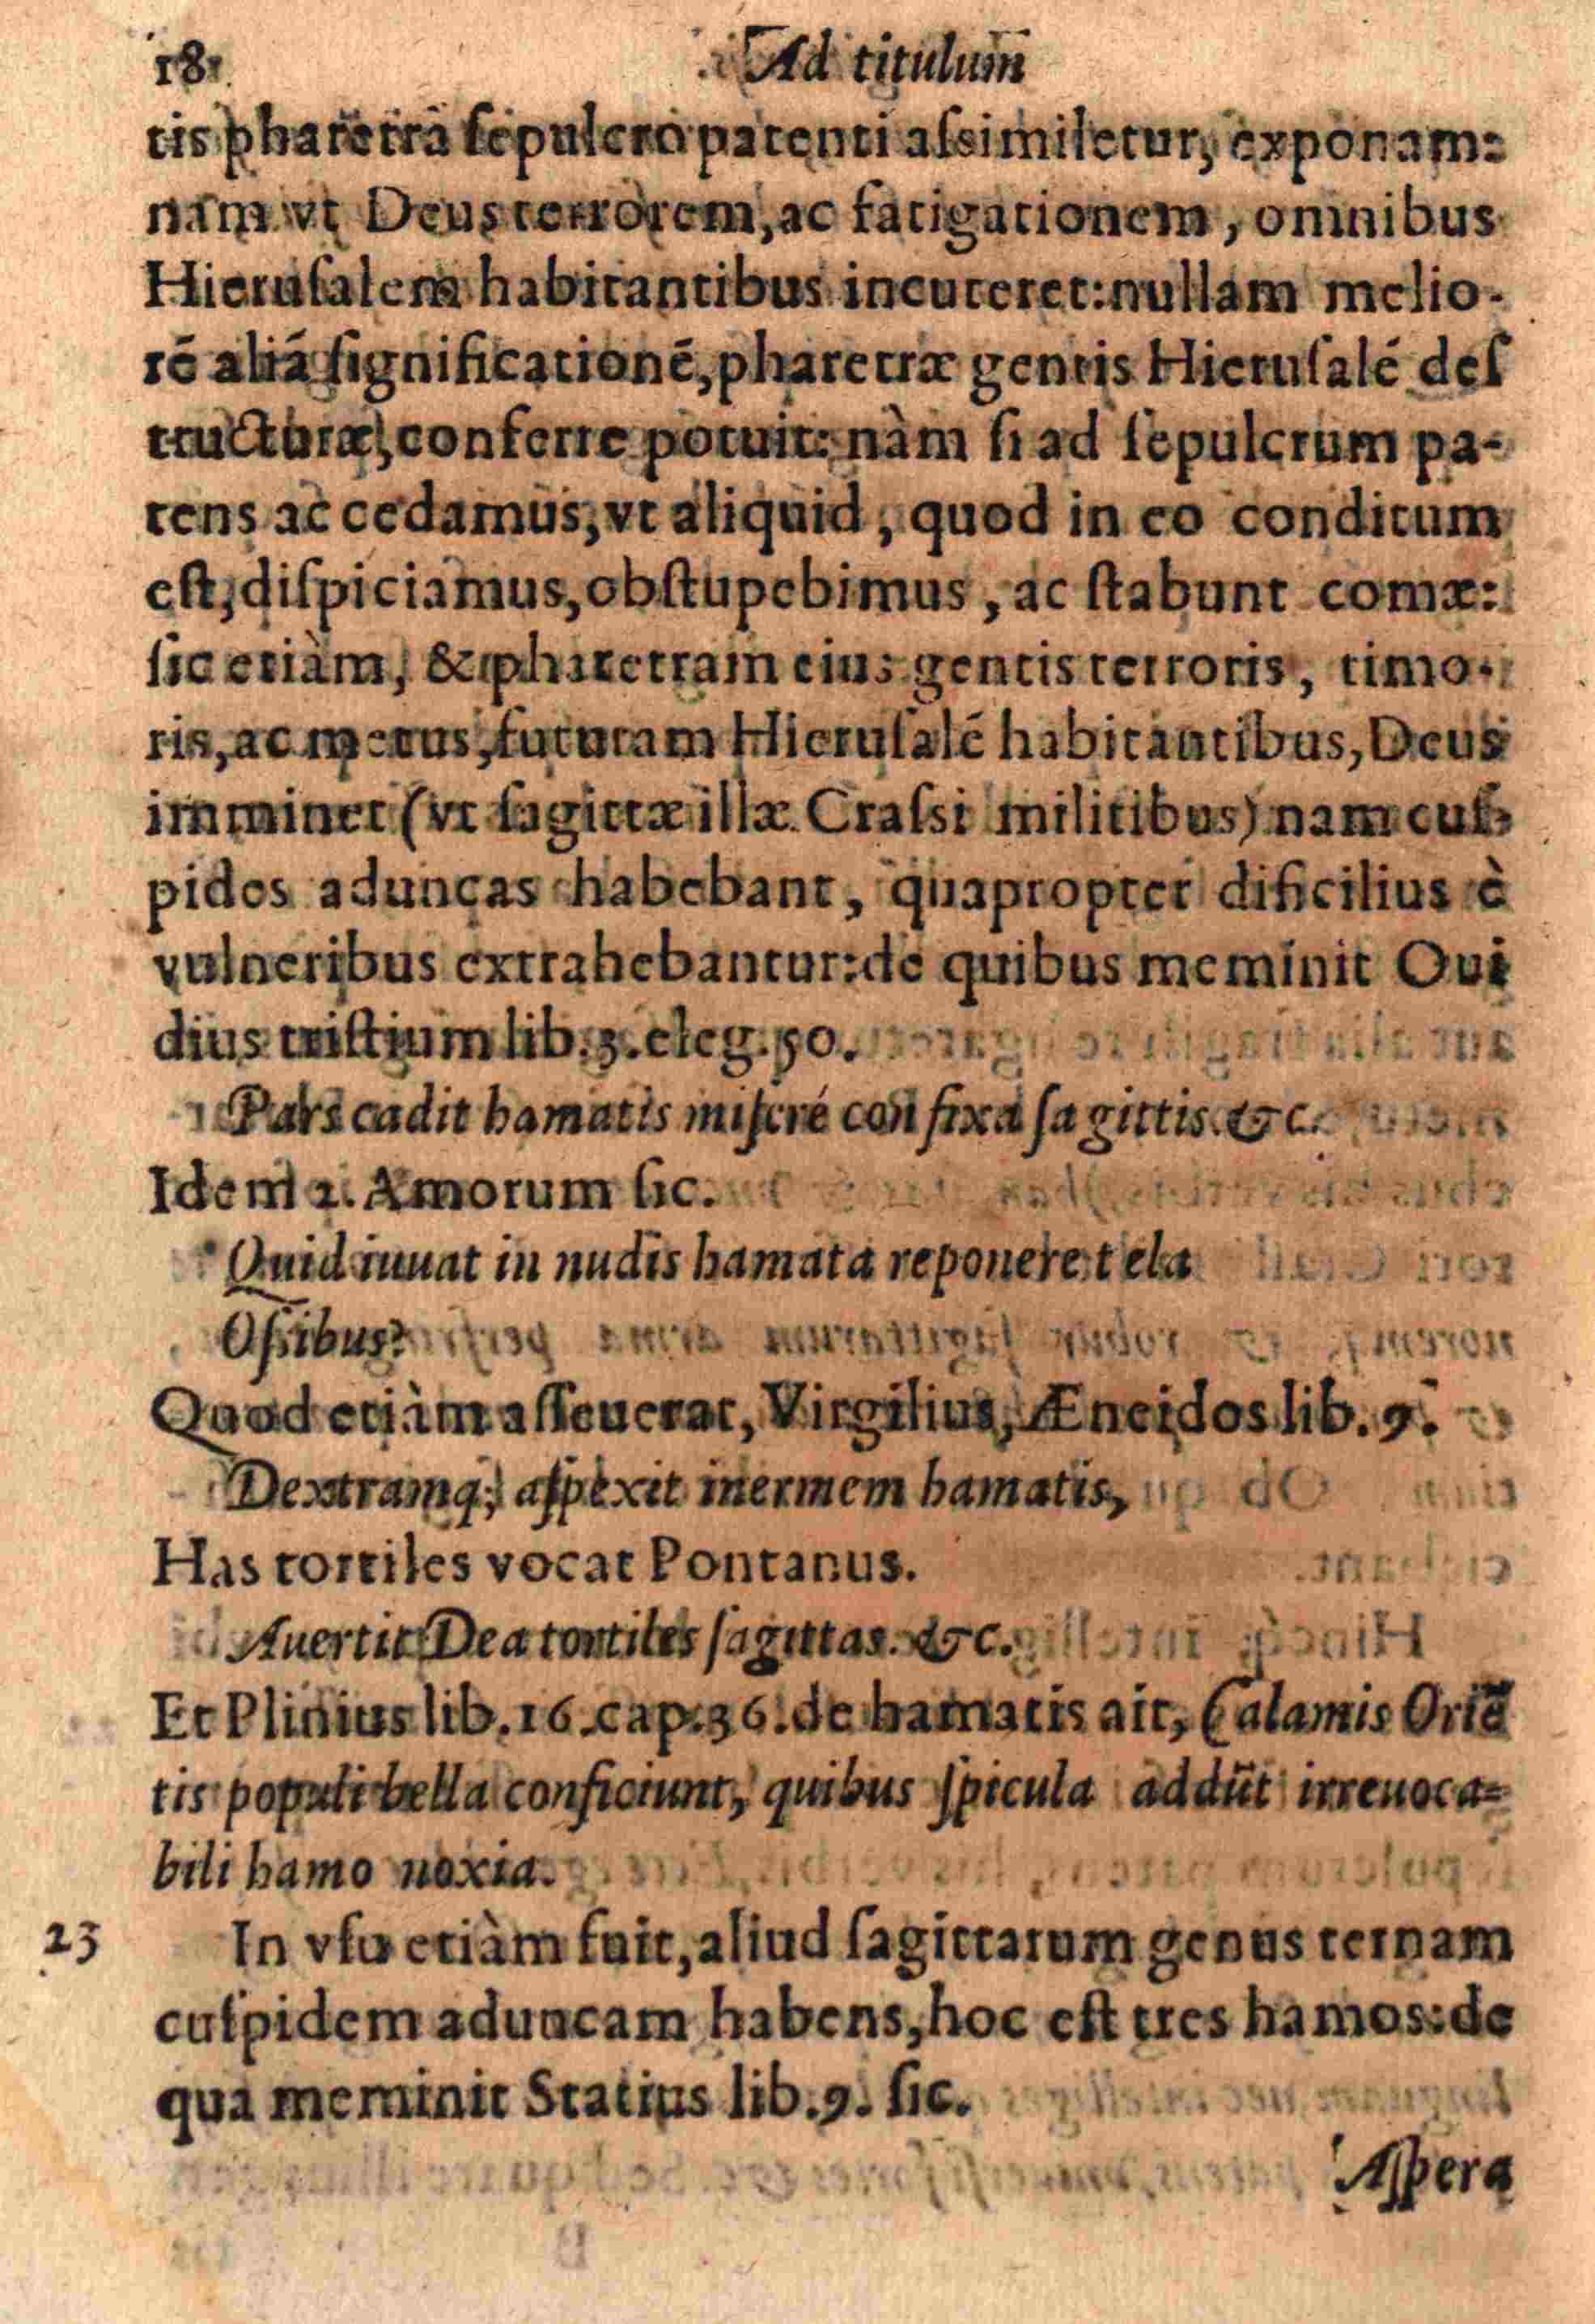 18 Ad titulum
tis pharetra sepulcro patenti aſsimiletur, exponam:
nàm vt Deus terrorem, ac fatigationem, omnibus
Hieruſalem habitantibus incuteret: nullam melio-
rē aliā ſignificationē, pharetræ gentis Hieruſalē deſ
tructuræ, conferre potuit: nàm ſi ad ſepulcrum pa-
tens ac cedamus, vt aliquid, quod in eo conditum
eſt, diſpiciamus, obſtupebimus, ac ſtabunt comæ:
ſic etiàm, & pharetram eius gentis terroris, timo-
ris, ac metus, futuram Hieruſalē habitantibus, Deus
imminet (vt ſagittæ illæ Craſsi militibus) nam cuſ-
pides aduncas habebant, quapropter dificilius è
vulneribus extrahebantur: de quibus meminit Oui
dius triſtium lib. 3. eleg. 50.
Pars cadit hamatis miſeré con fixa ſa gittis. &c.
Idem 2. Amorum ſic.
Quid iuuat in nudis hamata reponere tela
Oſsibus?
Quod etiàm aſſeuerat, Virgilius, Æneidos lib. 9.
Dextramq; aſpexit inermem hamatis,
Has tortiles vocat Pontanus.
Auertit Dea tortiles ſagittas. &c.
Et Plinius lib. 16. cap. 36. de hamatis ait, Calamis Oriē
tis populi bella conficiunt, quibus ſpicula addūt irreuoca-
bili hamo noxia.
23 In vſu etiàm fuit, aliud ſagittarum genus ternam
cuſpidem aduncam habens, hoc eſt tres hamos: de
qua meminit Statius lib. 9. ſic.
Aſpera